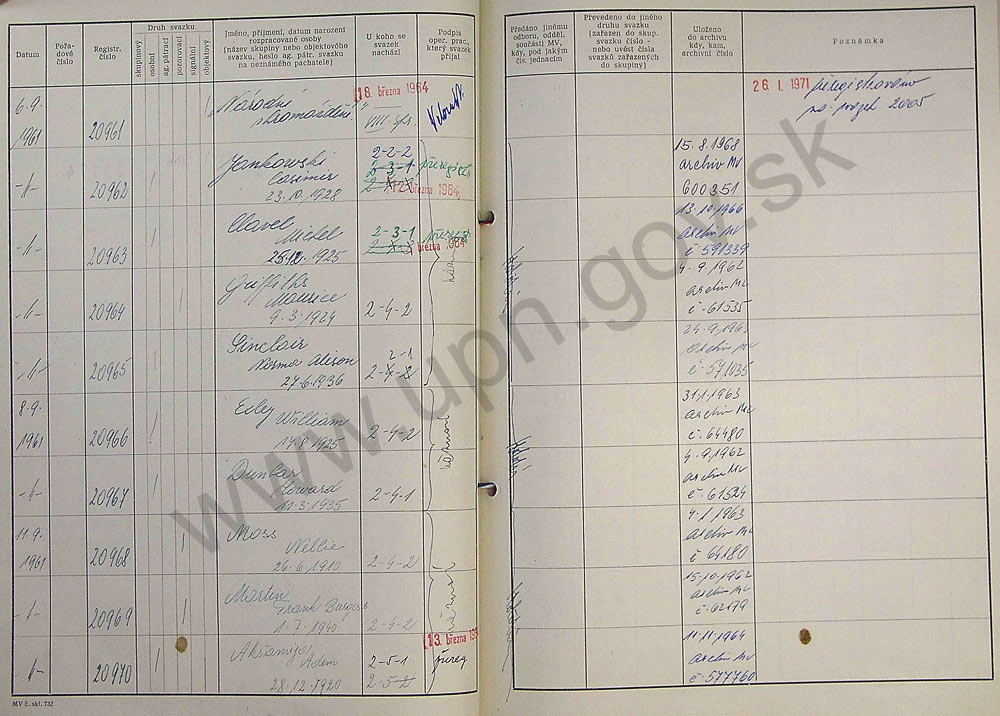 Datum
Pořa-
dové
číslo
Registr.
číslo
Druh svazku
skupinový
osobní
ag. pátrací
pozorovací
signální
objektový
Jméno, příjmení, datum narození
rozpracované osoby
(název skupiny nebo objektového
svazku, heslo ag. pátr. svazku
na neznámého pachatele)
U koho se
svazek
nachází
Podpis
oper. prac.,
který svazek
přijal
Předáno jinému
odboru, odděl.
součásti MV,
kdy, pod jakým
čís. jednacím
Převedeno do jiného
druhu svazku
(zařazen do skup.
svazku číslo -
nebo uvést čísla
svazků zařazených
do skupiny)
Uloženo
do archivu
kdy, kam,
archivní číslo
Poznámka
6.9.
1961
20961
"Národní
shromáždění"
18. března 1964
VIII.
26. I. 1971
přeregistrováno
2005
-//-
20962
Jankowski
Casimir
23.10.1928
2-2-2
2-3-1
12. března 1964
15.8.1968
archiv MV
600351
-//-
20963
Clavel
Michel
25.12.1925
2-3-1
března 1964
13.10.1966
archiv MV
č 591339
-//-
20964
Griffiths
Maurice
9.3.1924
2-4-2
4.9.1962
archiv MV
č-61535
-//-
20965
Sinclair
Norma Alison
27.6.1936
2-1
2-4-2
archiv MV
č-571035
8.9.
1961
20966
Eiby William
14.8.1925
2-4-2
31.1.1963
archiv MV
č.64480
-//-
20967
Dunbar
Howard
11.3.1935
2-4-1
4.9.1962
archiv MV
č-61524
11.9.
1961
20968
Moss
Nellie
26.6.1910
2-4-2
archiv MV
č 64180
-//-
20969
Martin
Frank Burgoss
1.7.1940
2-4-2
15.10.1962
archiv MV
č.62179
-//-
20970
Adem
28.12.1920
2-5-1
2-5-2
13. března
přereg
11.11.1964
archiv MV
č-577760
MV č. skl. 732
www.upn.gov.sk